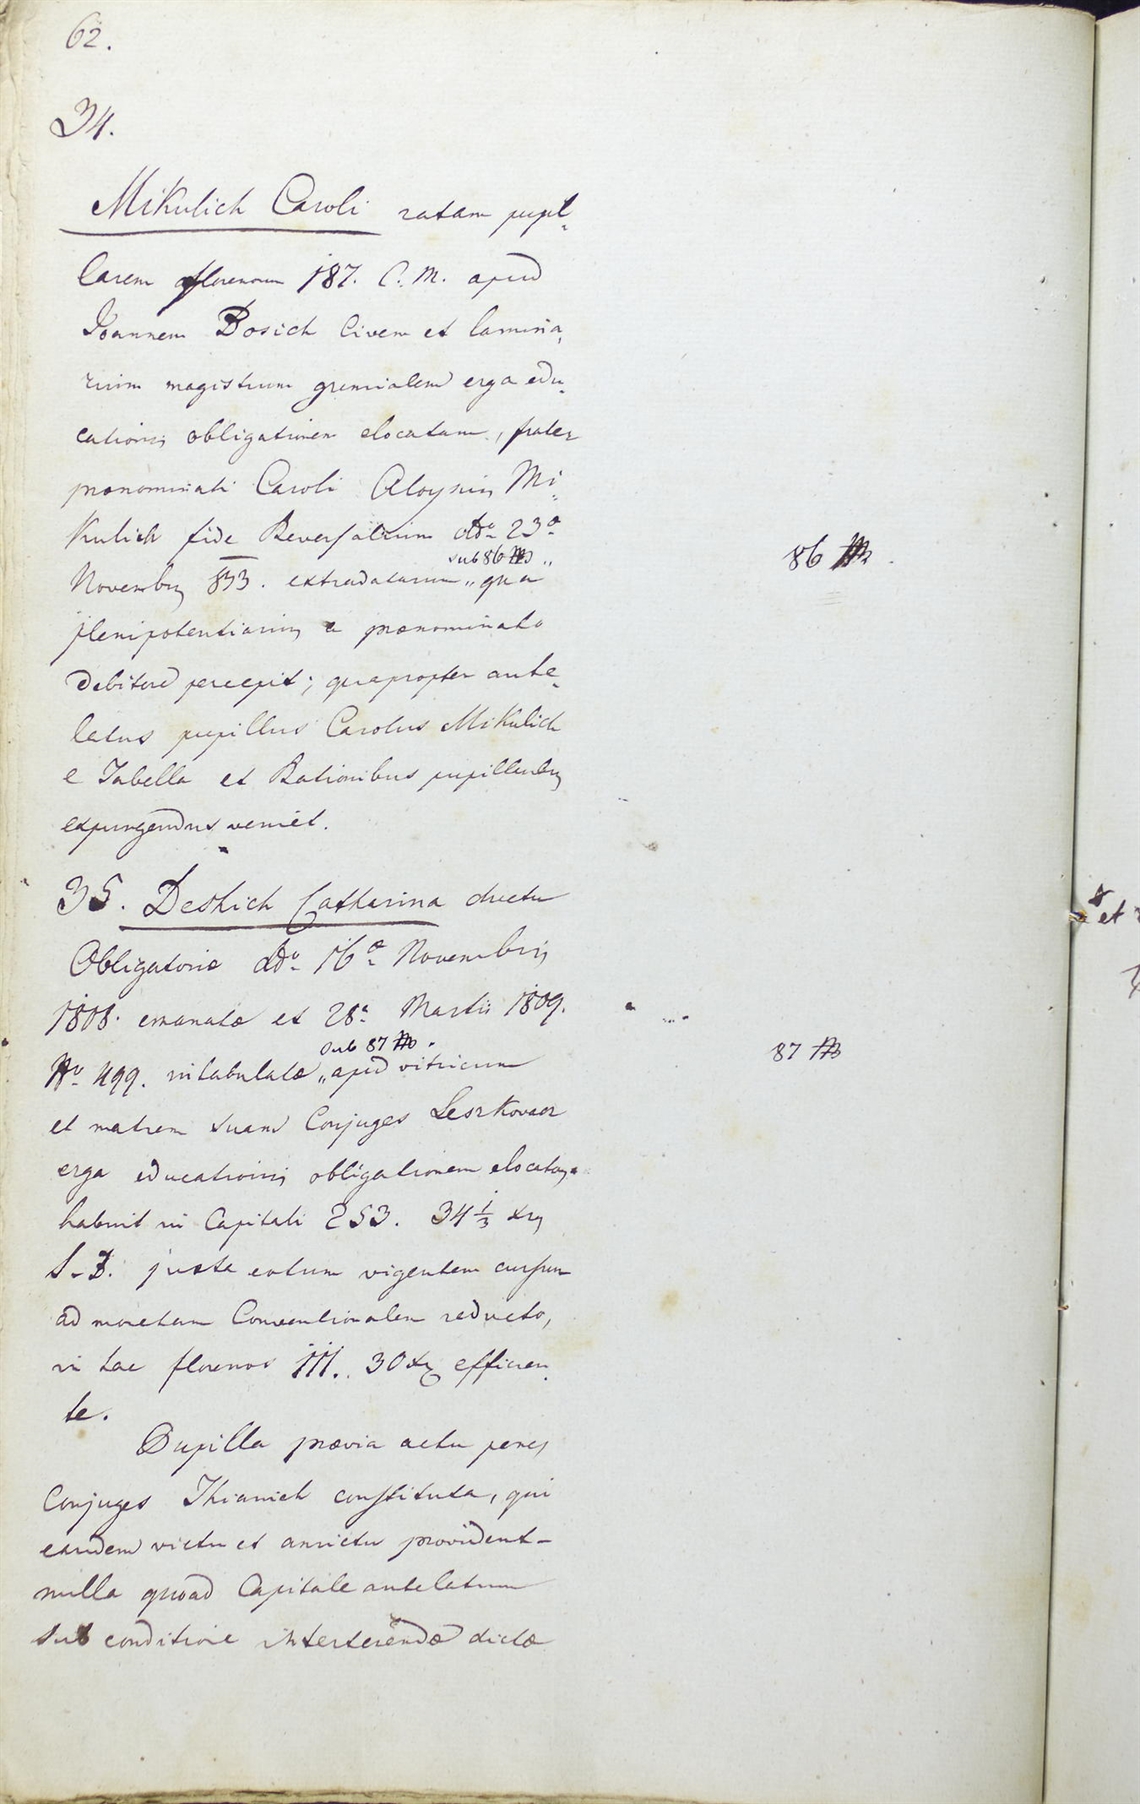 62.
34.
Mikulich Caroli ratam pupil-
larem florenorum 187. C. M. apud
Joannem Bosich Civem et lamina-
rium magistrum gremialem erga edu-
cationis obligationem elocatam, frater
prænominati Caroli Aloysius Mi-
kulich fide Reversalium ddo 23a
sub 86
Novembris 833. extradatarum „ qua
plenipotentiarius a prænominato
debitore percepit; quapropter ante-
latus pupillus Carolus Mikulich
e Tabella et Rationibus pupillaribus
expungendus veniet.
86
35. Deskich Catharina ductu
Obligatoriæ ddo 16a Novembris
1808. emanatæ et 28a Martii 1809.
sub 87
No 499. intabulatæ „ apud vitricum
et matrem suam Conjuges Leszkovacz
erga educationis obligationem elocatum
habuit in Capitali 253. 34 1/3 xrs
juxta vigentem cursum
ad monetam Conventionalem reducto,
in hac florenos 111. 30 xr efficien-
te.
87
Pupilla prævia actu penes
Conjuges Thianich constituta, qui
eandem victu et amictu provident-
nulla quoad Capitale antelatum
sub conditione dictæ
et